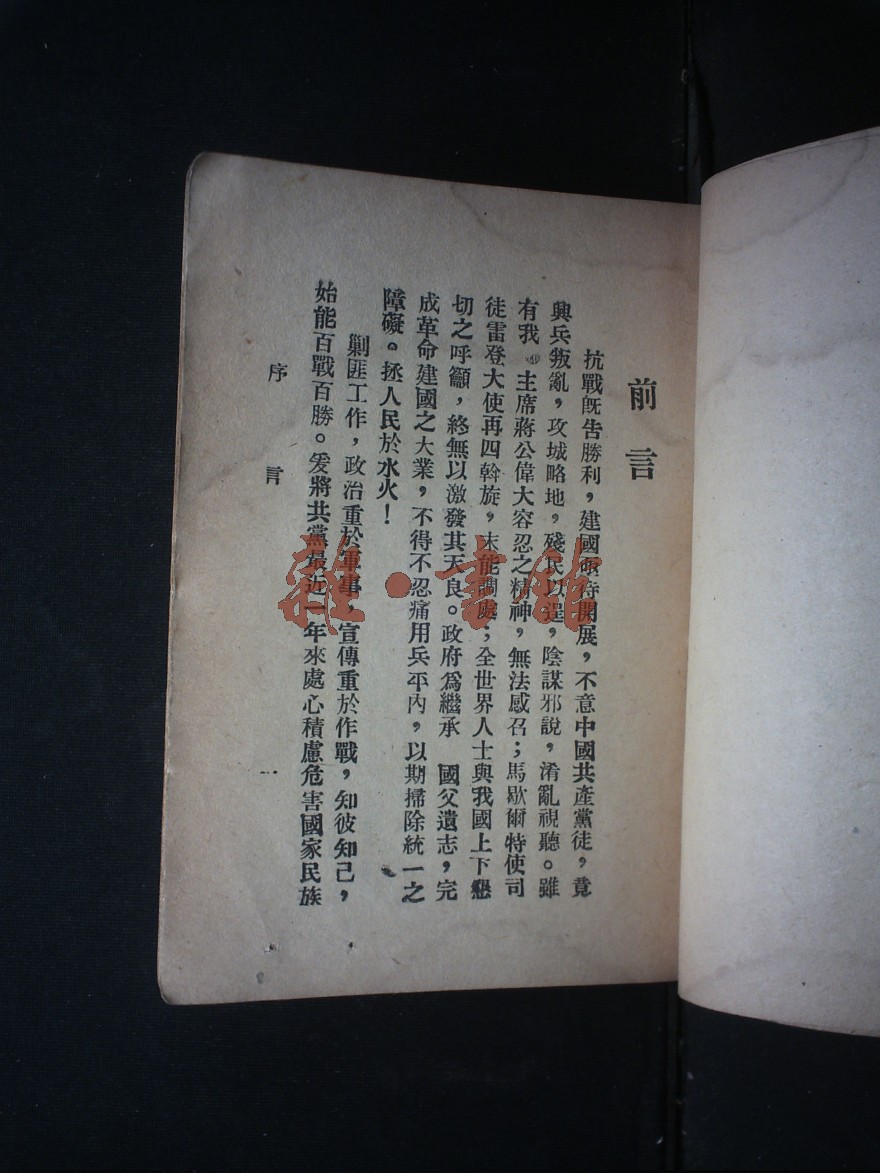 前言
抗戰旣告勝利，建國亟待開展，不意中國共產黨徒，竟
興兵叛亂，攻城略地，殘民以逞，陰謀邪說，淆亂視聽。雖
有我　主席蔣公偉大容忍之精神，無法感召；馬歇爾特使司
徒雷登大使再四斡旋，末能調處；全世界人士與我國上下懇
切之呼籲，終無以激發其天良。政府爲繼承　國父遺志，完
成革命建國之大業，不得不忍痛用兵平內，以期掃除統一之
障礙。拯人民於水火！
剿匪工作，政治重於軍事，宣傳重於作戰，知彼知己，
始能百戰百勝。爰將共黨最近一年來處心積慮危害國家民族
序言
一
雜·書館